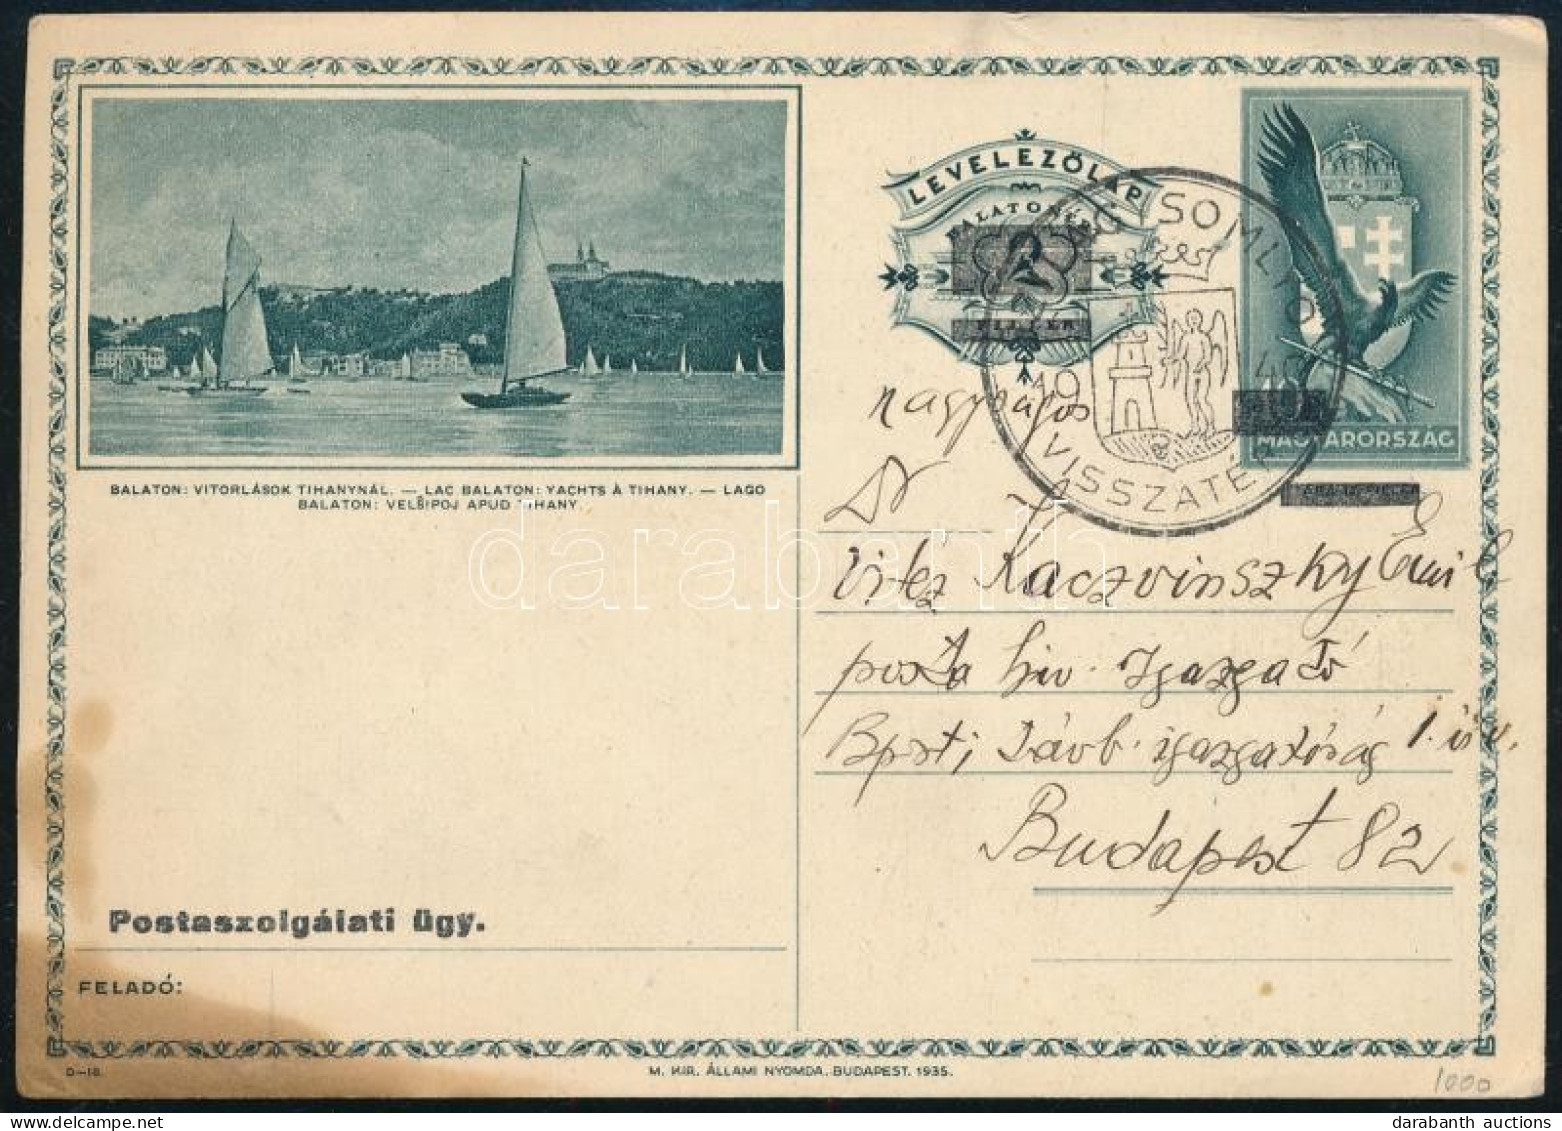 LEVELEZŐLAP
2
FILLÉR
SOMLYÓ
VISSZATÉRT
10
MAGYARORSZÁG
BALATON: VITORLÁSOK TIHANYNÁL. — LAC BALATON: YACHTS À TIHANY. — LAGO
BALATON: VELŜIPOJ APUD TIHANY
nagyságos
Dr
Vitéz Kaczvinszky Emil
posta hiv. Igazgató
Bpsti Távb. igazgatóság I. üv.
Budapest 82
Postaszolgálati ügy.
FELADÓ:
D—18.
M. KIR. ÁLLAMI NYOMDA. BUDAPEST. 1935.
1000
darabanth
darabanth auctions